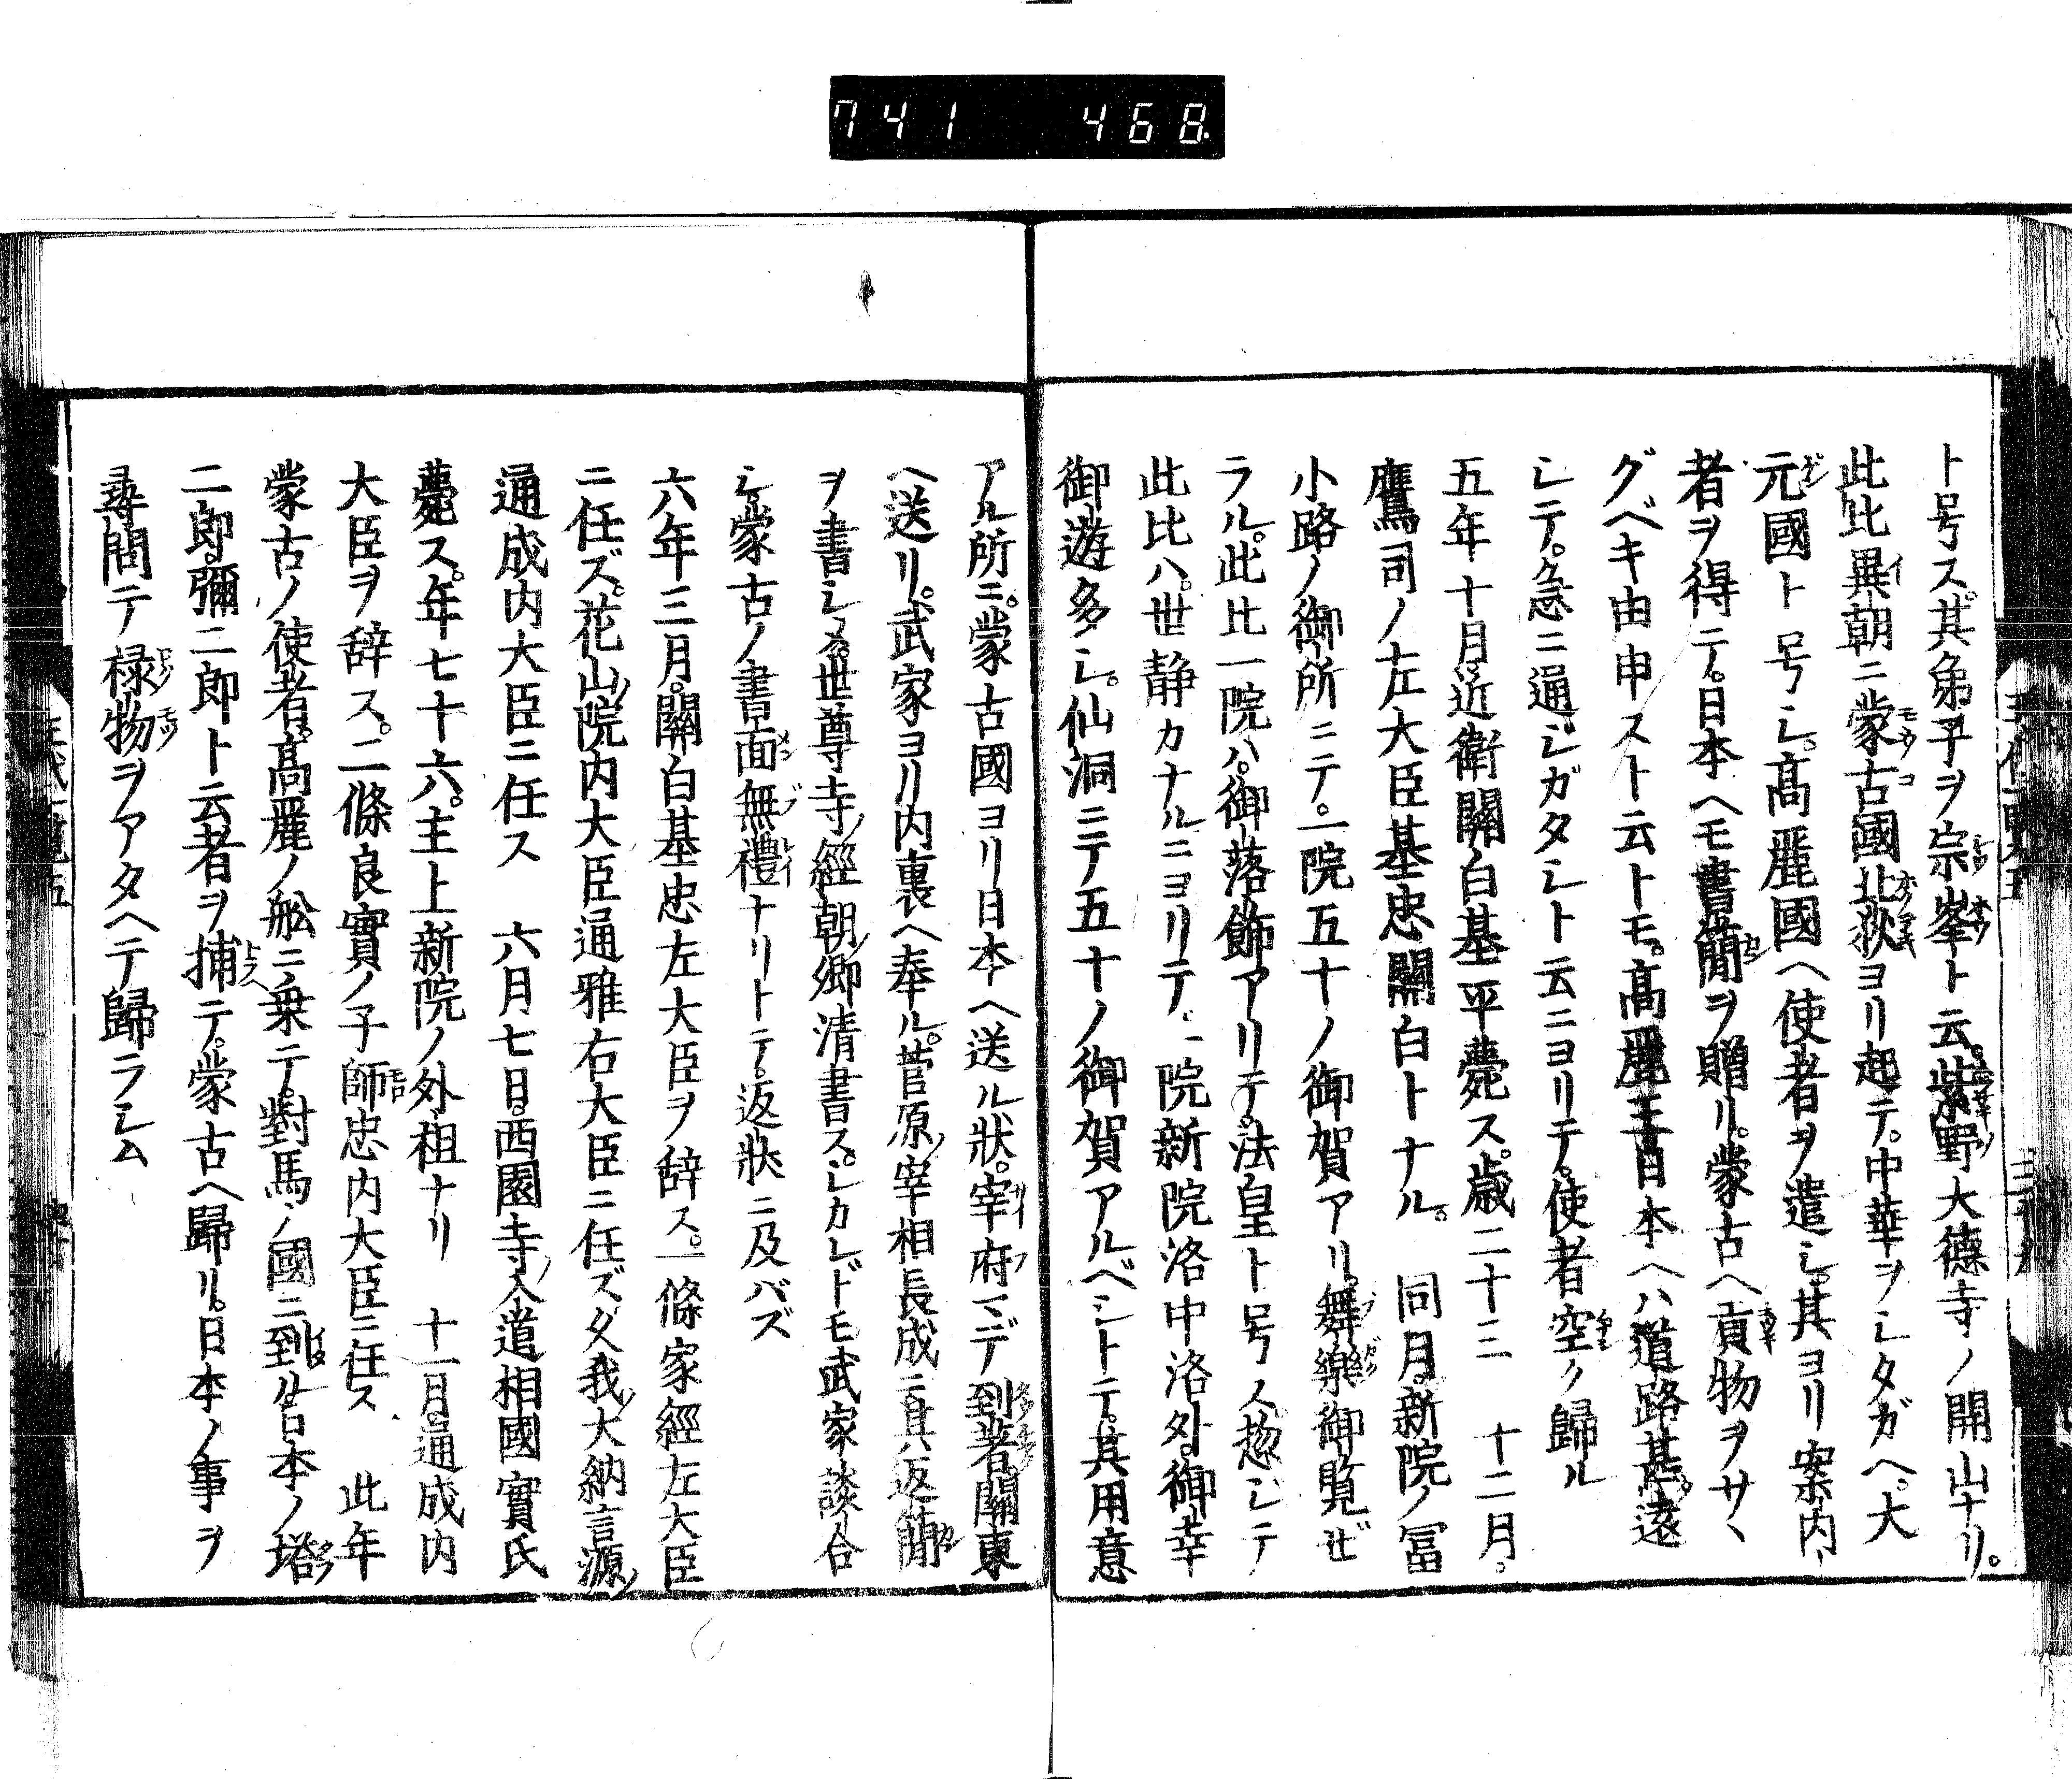 741 468.
ト号ス。其弟子ヲ宗峯ト云。紫野大德寺ノ開山ナリ。
此比異朝ニ蒙古國北狄ヨリ起テ。中華ヲシタガヘ。大
元國ト号シ。髙麗國ヘ使者ヲ遣シ。其ヨリ案内
者ヲ得テ。日本ヘモ書簡ヲ贈ル。蒙古ヘ貢物ヲサヽ
グベキ由申スト云トモ。髙麗王日本ヘハ道路甚遠
シテ。急ニ通ジガタシト云ニヨリテ。使者空ク歸ル
五年十月。近衛關白基平薨ス。歳二十三 十二月。
鷹司ノ左大臣基忠關白トナル。 同月。新院ノ冨
小路ノ御所ニテ。一院五十ノ御賀アリ。舞樂御覧ゼ
ラル。此比一院ハ。御落飾アリテ。法皇ト号ス。惣シテ
此比ハ。世静カナルニヨリテ。一院新院洛中洛外。御幸
御遊多シ。仙洞ニテ五十ノ御賀アルベシトテ。其用意
アル所ニ。蒙古國ヨリ日本ヘ送ル狀。宰府マデ到著關東
ヘ送リ。武家ヨリ内裏ヘ奉ル。菅原ノ宰相長成ニ其返簡
ヲ書シメ。世尊寺ノ經朝ノ卿清書ス。シカレドモ武家談合
シ。蒙古ノ書面無禮ナリトテ。返狀ニ及バズ
六年三月。關白基忠左大臣ヲ辞ス。一條家經左大臣
ニ任ズ。花山ノ院内大臣通雅右大臣ニ任ズ久我ノ大納言源ノ
通成内大臣ニ任ス 六月七日。西園寺ノ入道相國實氏
薨ス。年七十六。主上新院ノ外祖ナリ 十一月。通成内
大臣ヲ辞ス。二條良實ノ子師忠内大臣ニ任ス 此年
蒙古ノ使者。髙麗ノ舩ニ乗テ。對馬ノ國ニ到ル。日本ノ塔
二郎。彌二郎ト云者ヲ捕テ。蒙古ヘ歸リ。日本ノ事ヲ
尋問テ祿物ヲアタヘテ歸ラシム